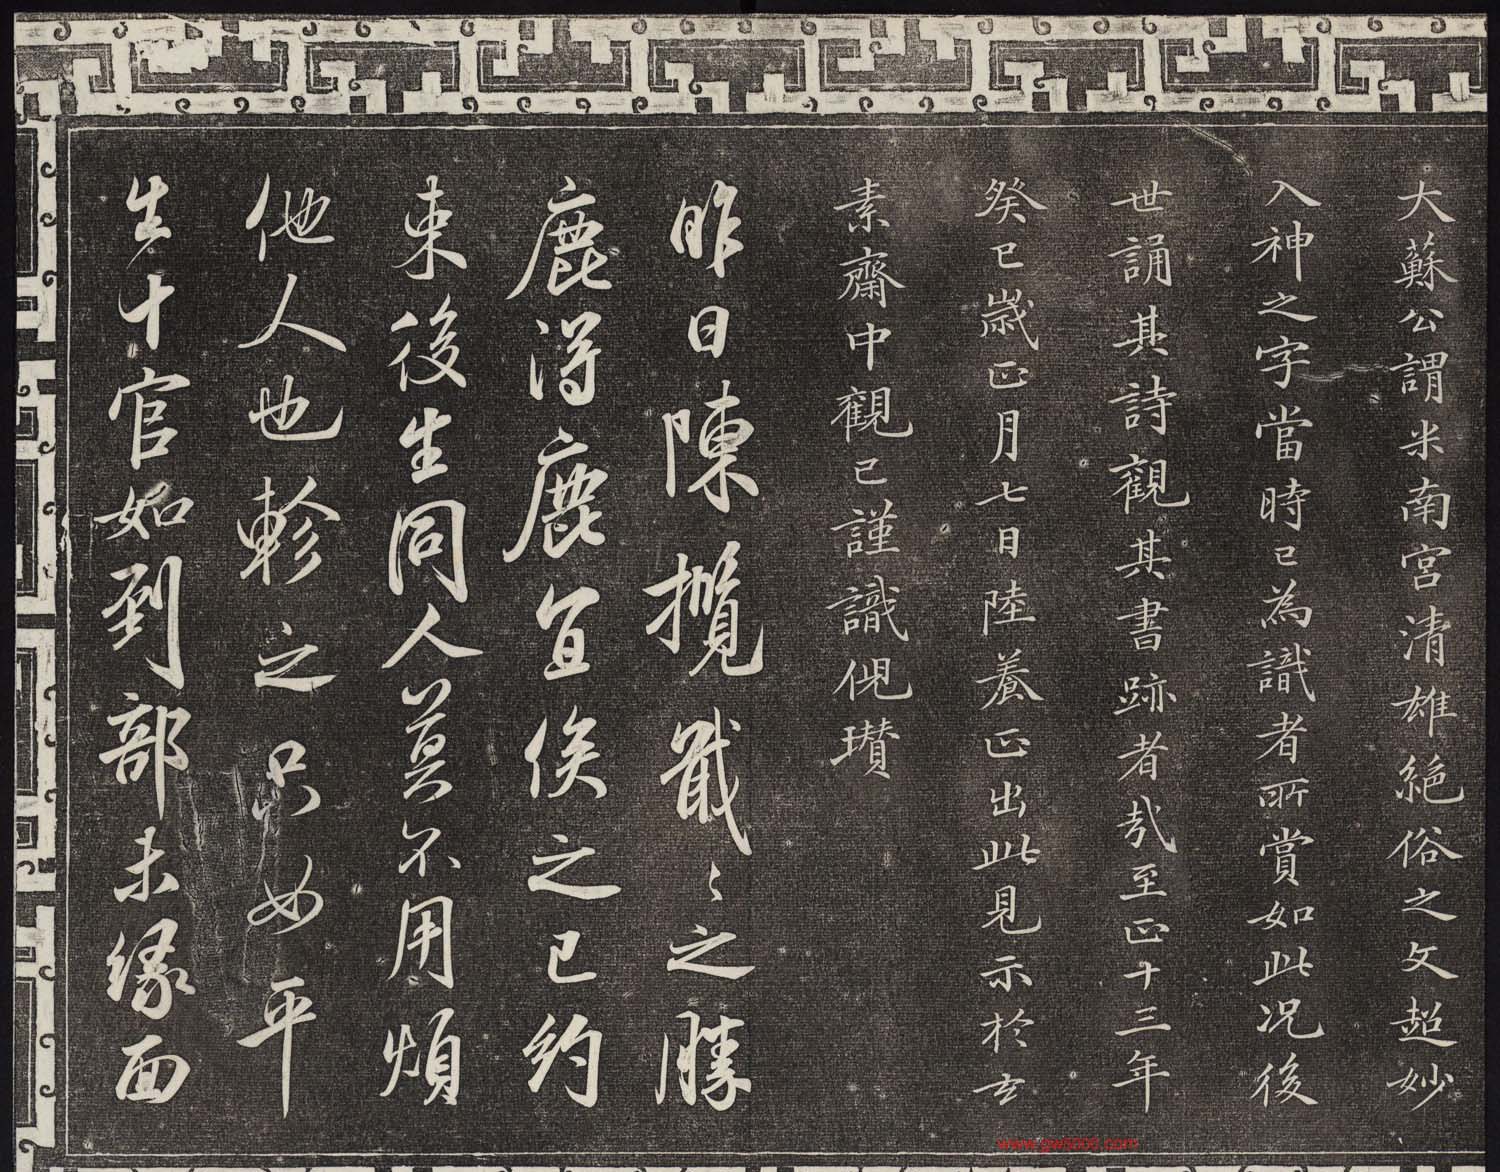 大蘇公謂米南宮清雄絕俗之文超妙
入神之字當時已為識者所賞如此况後
世誦其詩觀其書跡者哉至正十三年
癸巳歲正月七日陸養正出此見示於玄
素齋中觀已謹識倪瓚
昨日陳攬戢〻之勝
鹿得鹿宜俟之已約
束後生同人莫不用煩
他人也軫之只如平
生十官如到部未緣面
www.gw5000.com